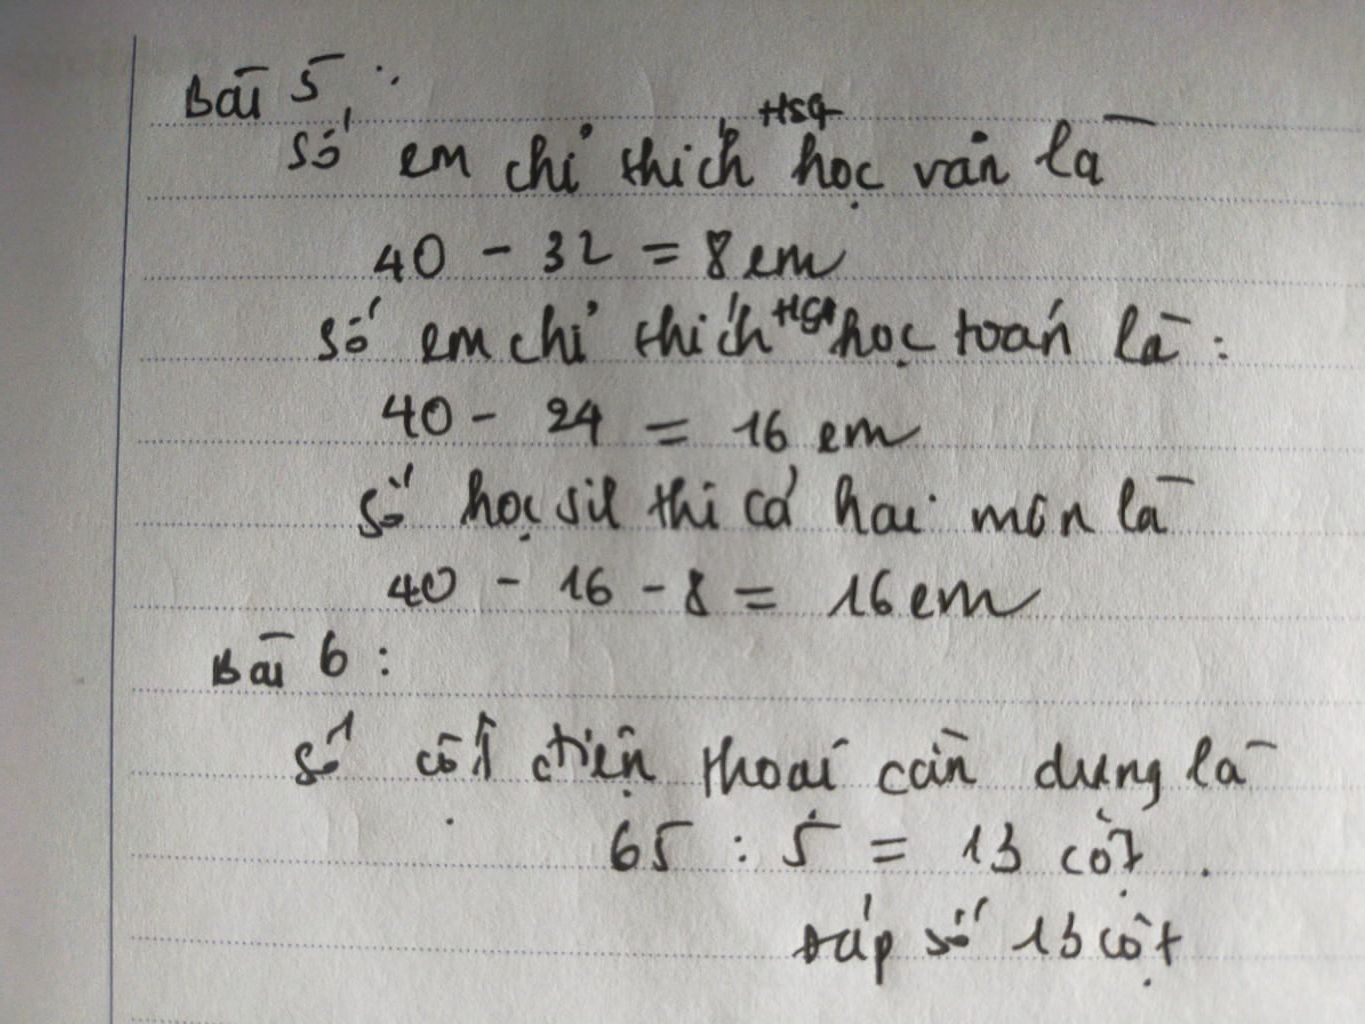 Bài 5:
Số em chỉ thích HSG học văn là
40 - 32 = 8 em
số em chỉ thích HSG học toán là:
40 - 24 = 16 em
số học sil thi cả hai môn là
40 - 16 - 8 = 16 em
Bài 6:
số cột điện thoại cần dùng là
65 : 5 = 13 cột.
đáp số 13 cột